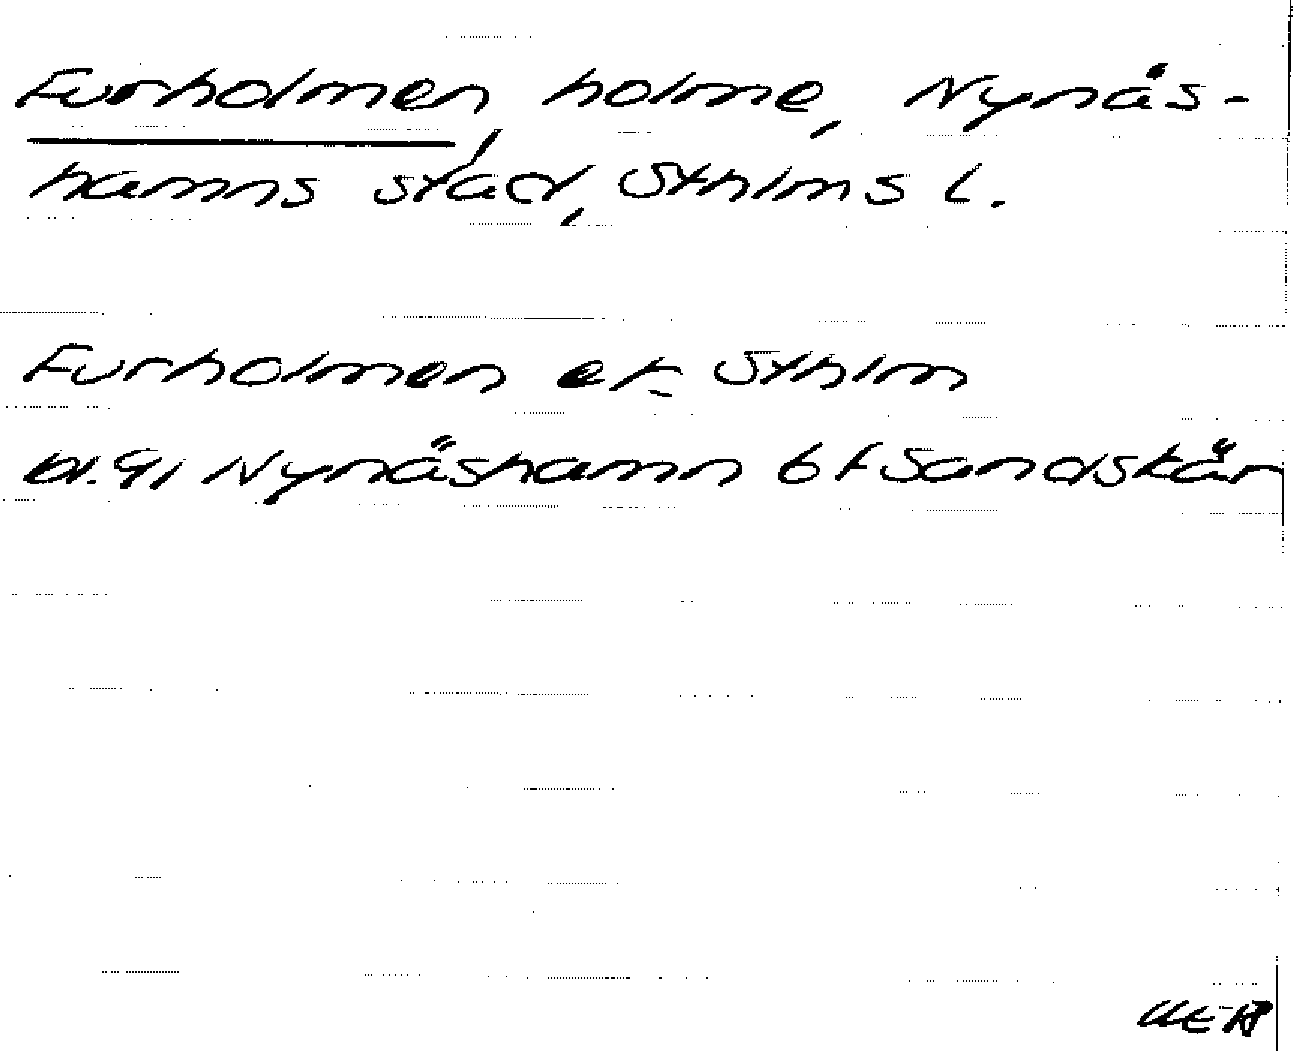 Furholmen, holme, Nynäs-
hamns stad, Sthlms l.
Furholmen ek Sthlm
bl. 91 Nynäshamn 6f Sandskär